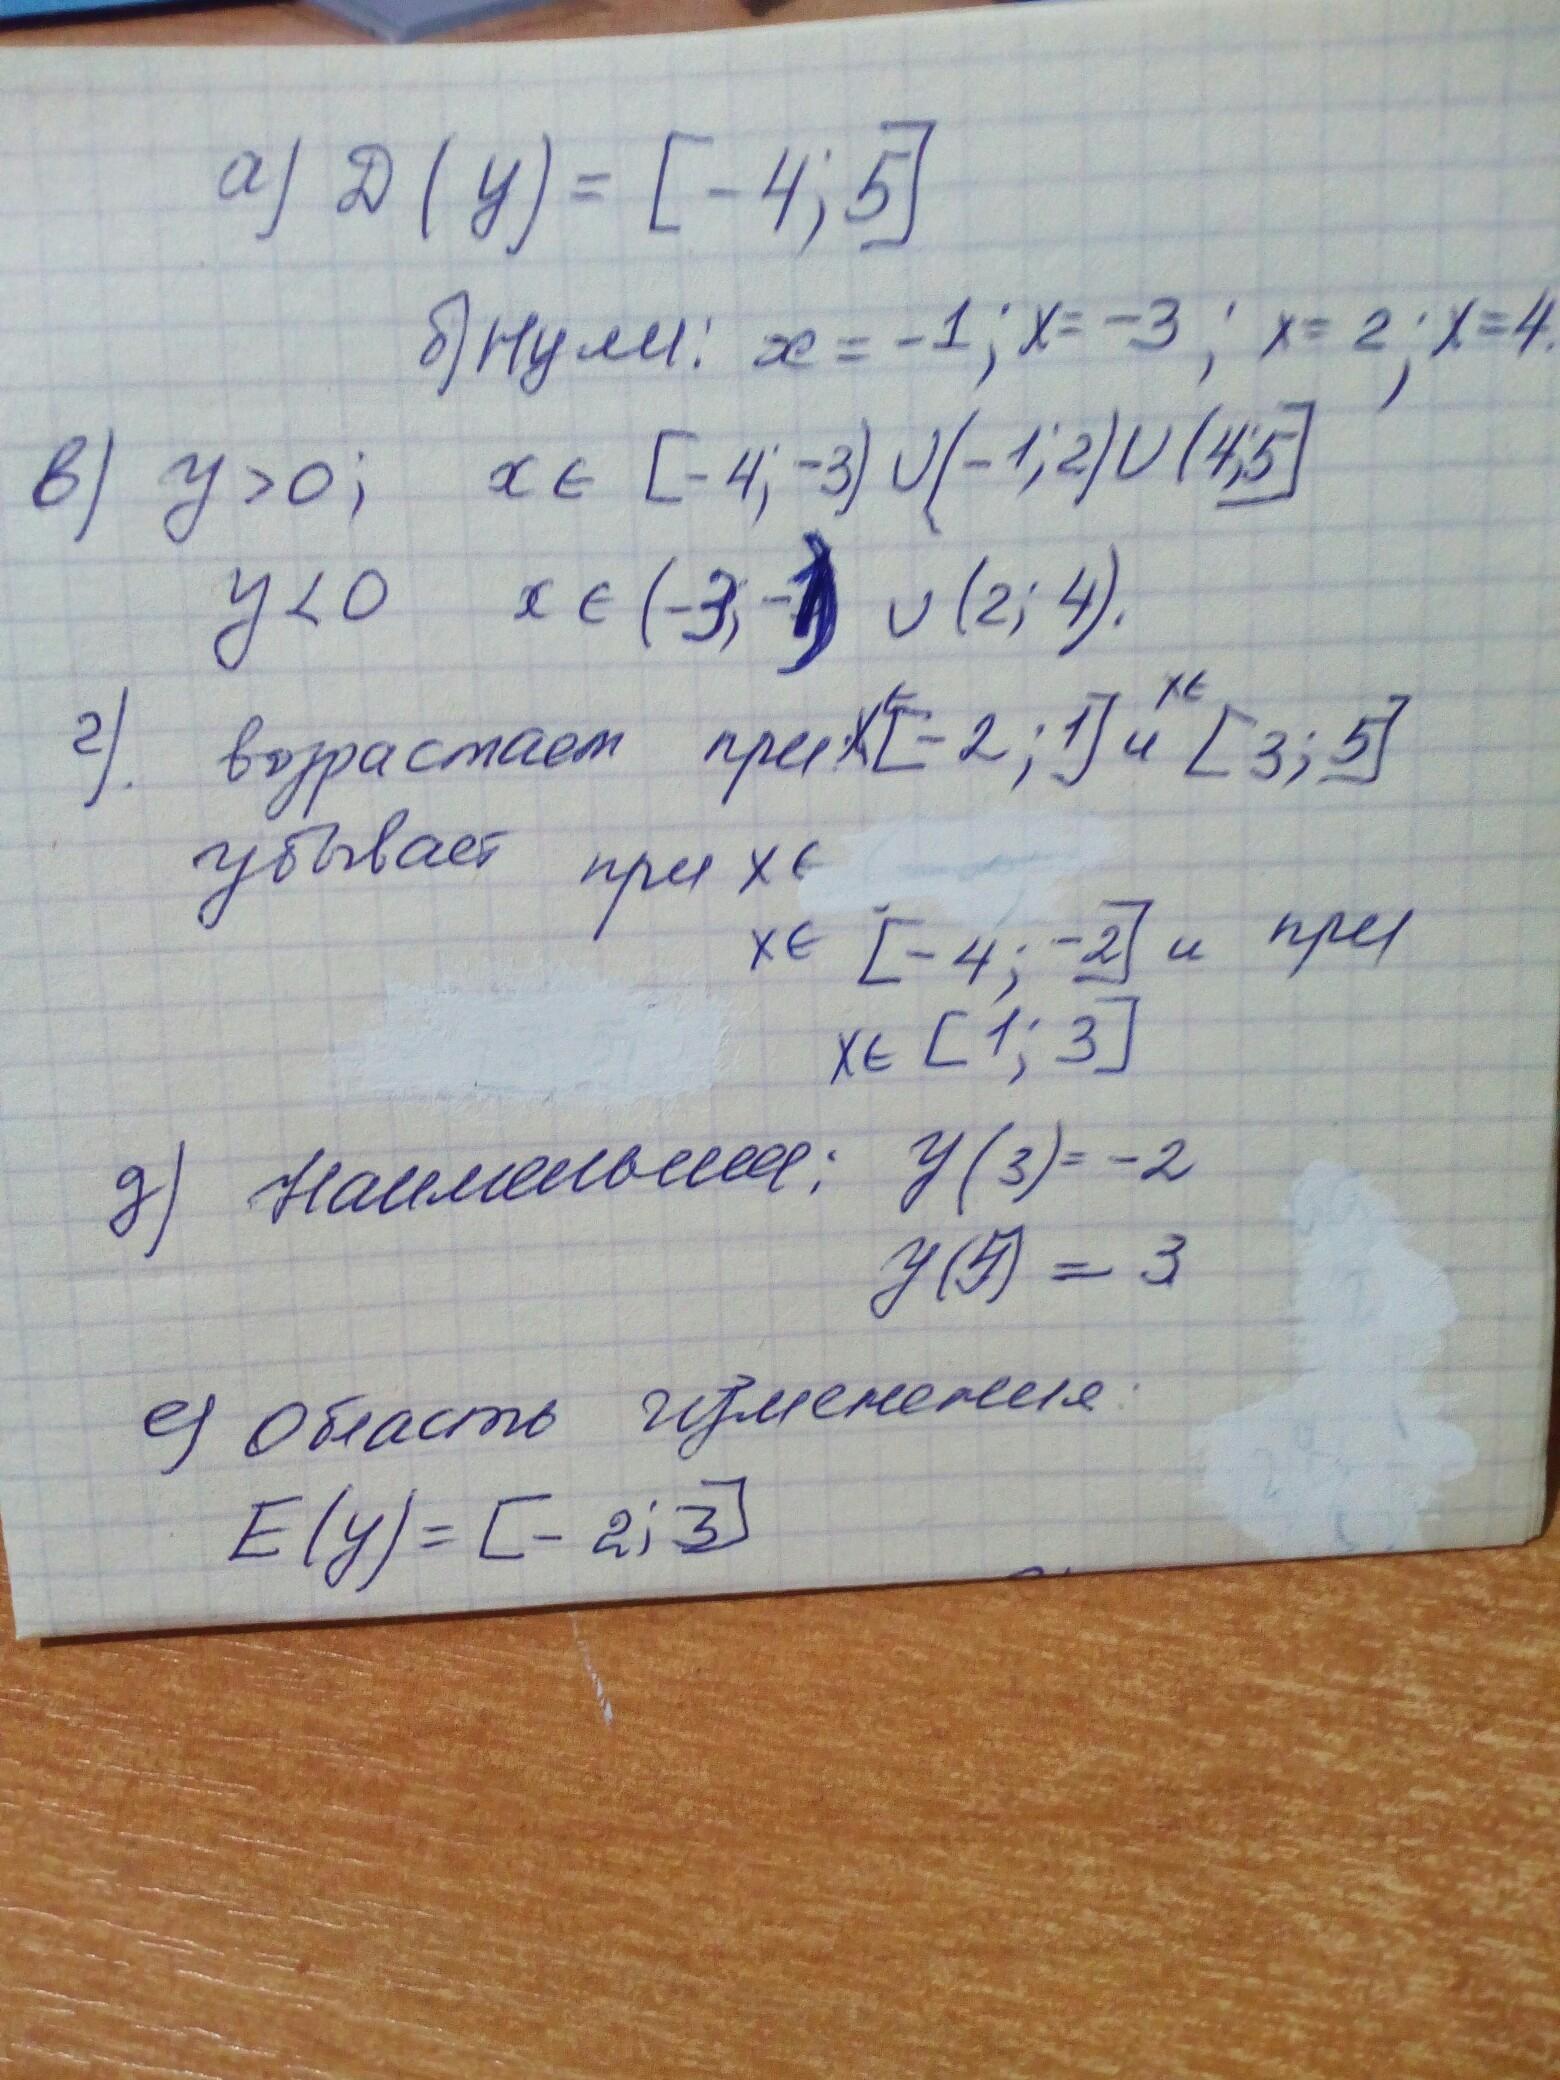 а) D(y) = [-4; 5]
б) Нули: x = -1; x = -3; x = 2; x = 4.
в) y > 0; x ∈ [-4; -3) ∪ (-1; 2) ∪ (4; 5]
y < 0 x ∈ (-3; -1) ∪ (2; 4).
г). возрастает при x∈ [-2; 1] и x∈ [3; 5]
убывает при x ∈
x ∈ [-4; -2] и при
x ∈ [1; 3]
д) Наименьшее: y(3) = -2
y(5) = 3
е) Область изменения:
E(y) = [-2; 3]